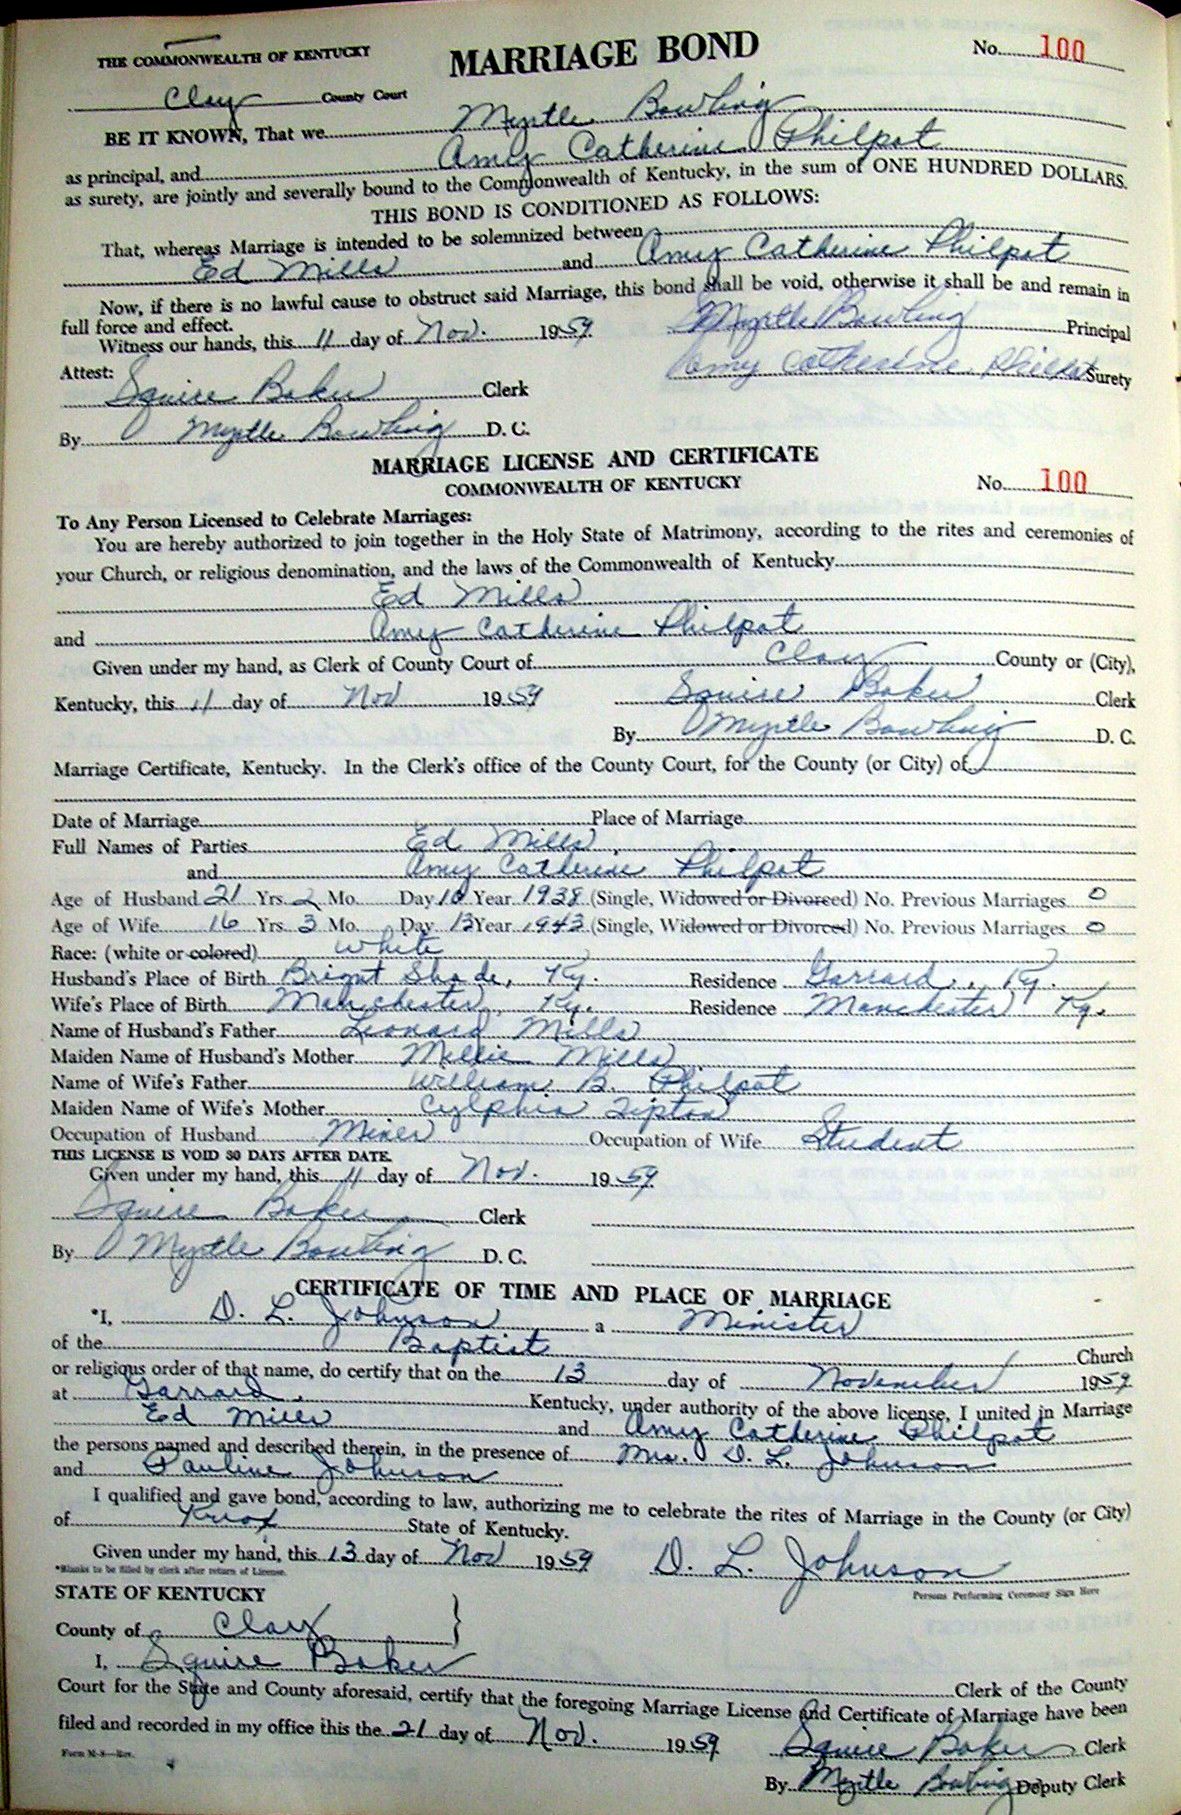 THE COMMONWEALTH OF KENTUCKY
MARRIAGE BOND
No. 100
Clay County Court
BE IT KNOWN, That we Myrtle Bowling
as principal, and Amy Catherine Philpot
as surety, are jointly and severally bound to the Commonwealth of Kentucky, in the sum of ONE HUNDRED DOLLARS.
THIS BOND IS CONDITIONED AS FOLLOWS:
That, whereas Marriage is intended to be solemnized between
Ed Mills and Amy Catherine Philpot
Now, if there is no lawful cause to obstruct said Marriage, this bond shall be void, otherwise it shall be and remain in
full force and effect.
Witness our hands, this 11 day of Nov. 1959 Myrtle Bowling Principal
Attest: Amy Catherine Philpot Surety
Squire Baker Clerk
By Myrtle Bowling D. C.
MARRIAGE LICENSE AND CERTIFICATE
COMMONWEALTH OF KENTUCKY
No. 100
To Any Person Licensed to Celebrate Marriages:
You are hereby authorized to join together in the Holy State of Matrimony, according to the rites and ceremonies of
your Church, or religious denomination, and the laws of the Commonwealth of Kentucky
Ed Mills
and Amy Catherine Philpot
Given under my hand, as Clerk of County Court of Clay County or (City),
Kentucky, this 11 day of Nov 1959 Squire Baker Clerk
By Myrtle Bowling D. C.
Marriage Certificate, Kentucky. In the Clerk's office of the County Court, for the County (or City) of
Date of Marriage Place of Marriage
Full Names of Parties Ed Mills
and Amy Catherine Philpot
Age of Husband 21 Yrs. 2 Mo. Day 10 Year 1938 (Single, Widowed or Divorced) No. Previous Marriages 0
Age of Wife 16 Yrs. 3 Mo. Day 13 Year 1943 (Single, Widowed or Divorced) No. Previous Marriages 0
Race: (white or colored) white
Husband's Place of Birth Bright Shade, Ky. Residence Garrard, Ky.
Wife's Place of Birth Manchester, Ky. Residence Manchester Ky.
Name of Husband's Father Leonard Mills
Maiden Name of Husband's Mother Millie Mills
Name of Wife's Father William B. Philpot
Maiden Name of Wife's Mother Cylphia Tipton
Occupation of Husband Miner Occupation of Wife Student
THIS LICENSE IS VOID 30 DAYS AFTER DATE.
Given under my hand, this 11 day of Nov. 1959
Squire Baker Clerk
By Myrtle Bowling D. C.
CERTIFICATE OF TIME AND PLACE OF MARRIAGE
*I, D. L. Johnson a Minister
of the Baptist Church
or religious order of that name, do certify that on the 13 day of November 1959
at Garrard, Kentucky, under authority of the above license, I united in Marriage
Ed Mills and Amy Catherine Philpot
the persons named and described therein, in the presence of Mrs. D. L. Johnson
and Pauline Johnson
I qualified and gave bond, according to law, authorizing me to celebrate the rites of Marriage in the County (or City)
of Knox State of Kentucky.
Given under my hand, this 13 day of Nov 1959 D. L. Johnson
*Blanks to be filled by clerk after return of License. Persons Performing Ceremony Sign Here
STATE OF KENTUCKY
County of Clay
I, Squire Baker Clerk of the County
Court for the State and County aforesaid, certify that the foregoing Marriage License and Certificate of Marriage have been
filed and recorded in my office this the 21 day of Nov. 1959 Squire Baker Clerk
Form M-8—Rev.
By Myrtle Bowling Deputy Clerk